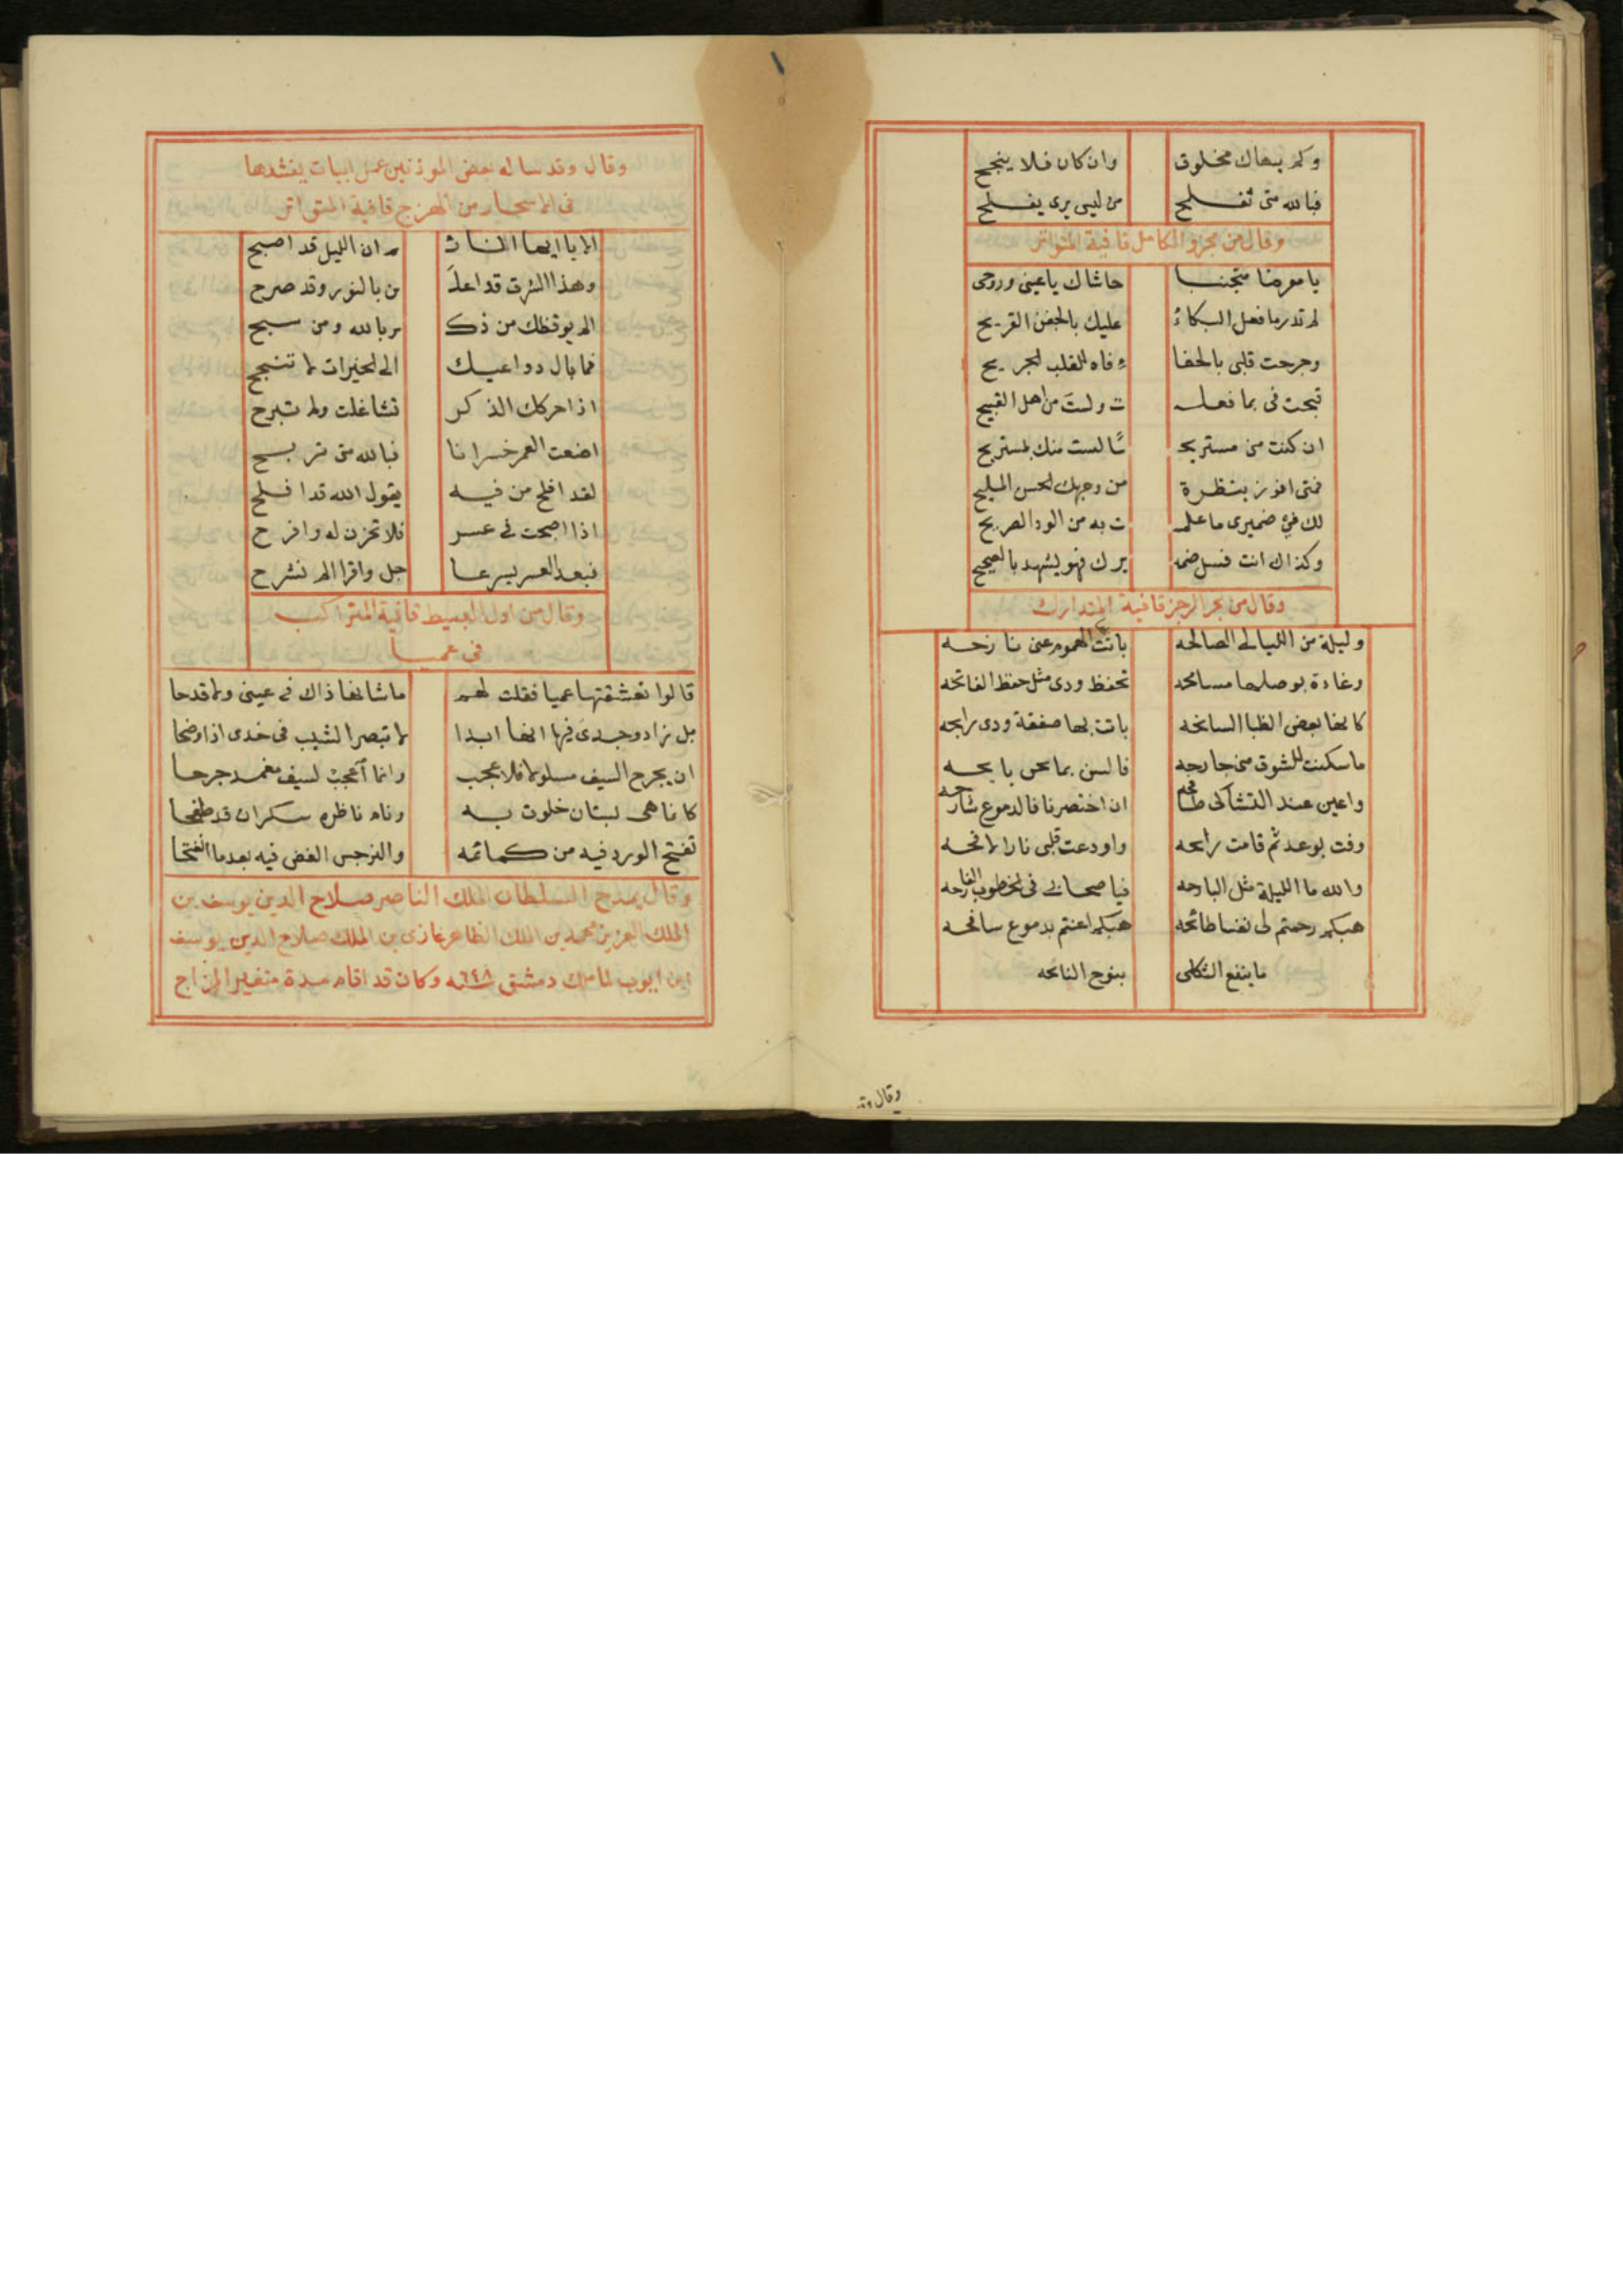 وكم ينهاك مخلوق وان كان فلا ينجح
فبالله متى تفلح من ليس يرى يفلح
وقال من مجزو الكامل قافية المتواتر
يا معرضا متجنبا حاشاك يا عينى وروحى
لم تدر ما فعل البكاءُ عليك بالجفن القريح
وجرحت قلبى بالجفا ءِ فاه للقلب الجريح
قبحت فى بما فعلـ ت ولستَ من اهل القبيح
ان كنت منى مستريحـ ًـا لست منك بمستريح
فمتى افوز بنظرة من وجهك الحسن المليح
لك فى ضميرى ما علمـ ت به من الود الصريح
وكذاك انت فسل ضمـ يرك فهو يشهد بالصحيح
وقال من بحر الرجز قافية المتدارك
وليلة من الليالى الصالحه باتت الهموم عنى نازحه
وغادة بوصلها مسامحه تحفظ ودى مثل حفظ الفاتحه
كانها بعض الظبا السانحه باتت بها صفقة ودى رابحه
ما سكنت للشوق منى جارحه فالسن بما نحن بايحه
واعين عند التشاكى طافحه ان اختصرنا فالدموع شارحه
وفت بوعد ثم قامت رايحه واودعت قلبى نارا لافحه
والله ما الليلة مثل البارحه فيا صحابى فى الخطوب الفارحه
هبكم رحمتم لى نفسا طائحه هبكم اعنتم بدموع سافحه
ما ينفع الثكلى بنوح النائحه
وقال وقد
وقال وقد ساله بعض الموذنين عمل ابيات ينشدها
فى الاسحار من الهزج قافية المتواتر
الا يا ايها النائـ م ان الليل قد اصبح
وهذا الشرق قد اعلَـ ن بالنور وقد صرح
الم يوقظك من ذكـ ر بالله ومن سبح
فما بال دواعيك الى الخيرات لا تنجح
اذا حركك الذكر تشاغلت ولم تبرح
اضعت العمر خسرانا فبالله متى تربح
لقد افلح من فيه يقول الله قد افلح
اذا اصبحت فى عسر فلا تحزن له وافرح
فبعد العسر يسر عا جل واقرا الم نشرح
وقال من اول البسيط قافية المتراكب
فى عميا
قالوا تعشقتها عميا فقلت لهم ما شانها ذاك فى عينى ولا قدحا
بل زاد وجدى فيها انها ابدا لا تبصر الشيب فى خدى اذا وضحا
ان يجرح السيف مسلولا فلا عجب وانما اعجب لسيف مغمد جرحا
كانما هى بستان خلوت به ونام ناظره سكران قد طفحا
تفتح الورد فيه من كمائمه والنرجس الغض فيه بعد ما انفتحا
وقال يمدح السلطان الملك الناصر صلاح الدين يوسف بن
الملك العزيز محمد بن الملك الظاهر غازى بن الملك صلاح الدين يوسف
ابن ايوب لما ملك دمشق سنة ٦٤٨ وكان قد اقام مدة متغير المزاج